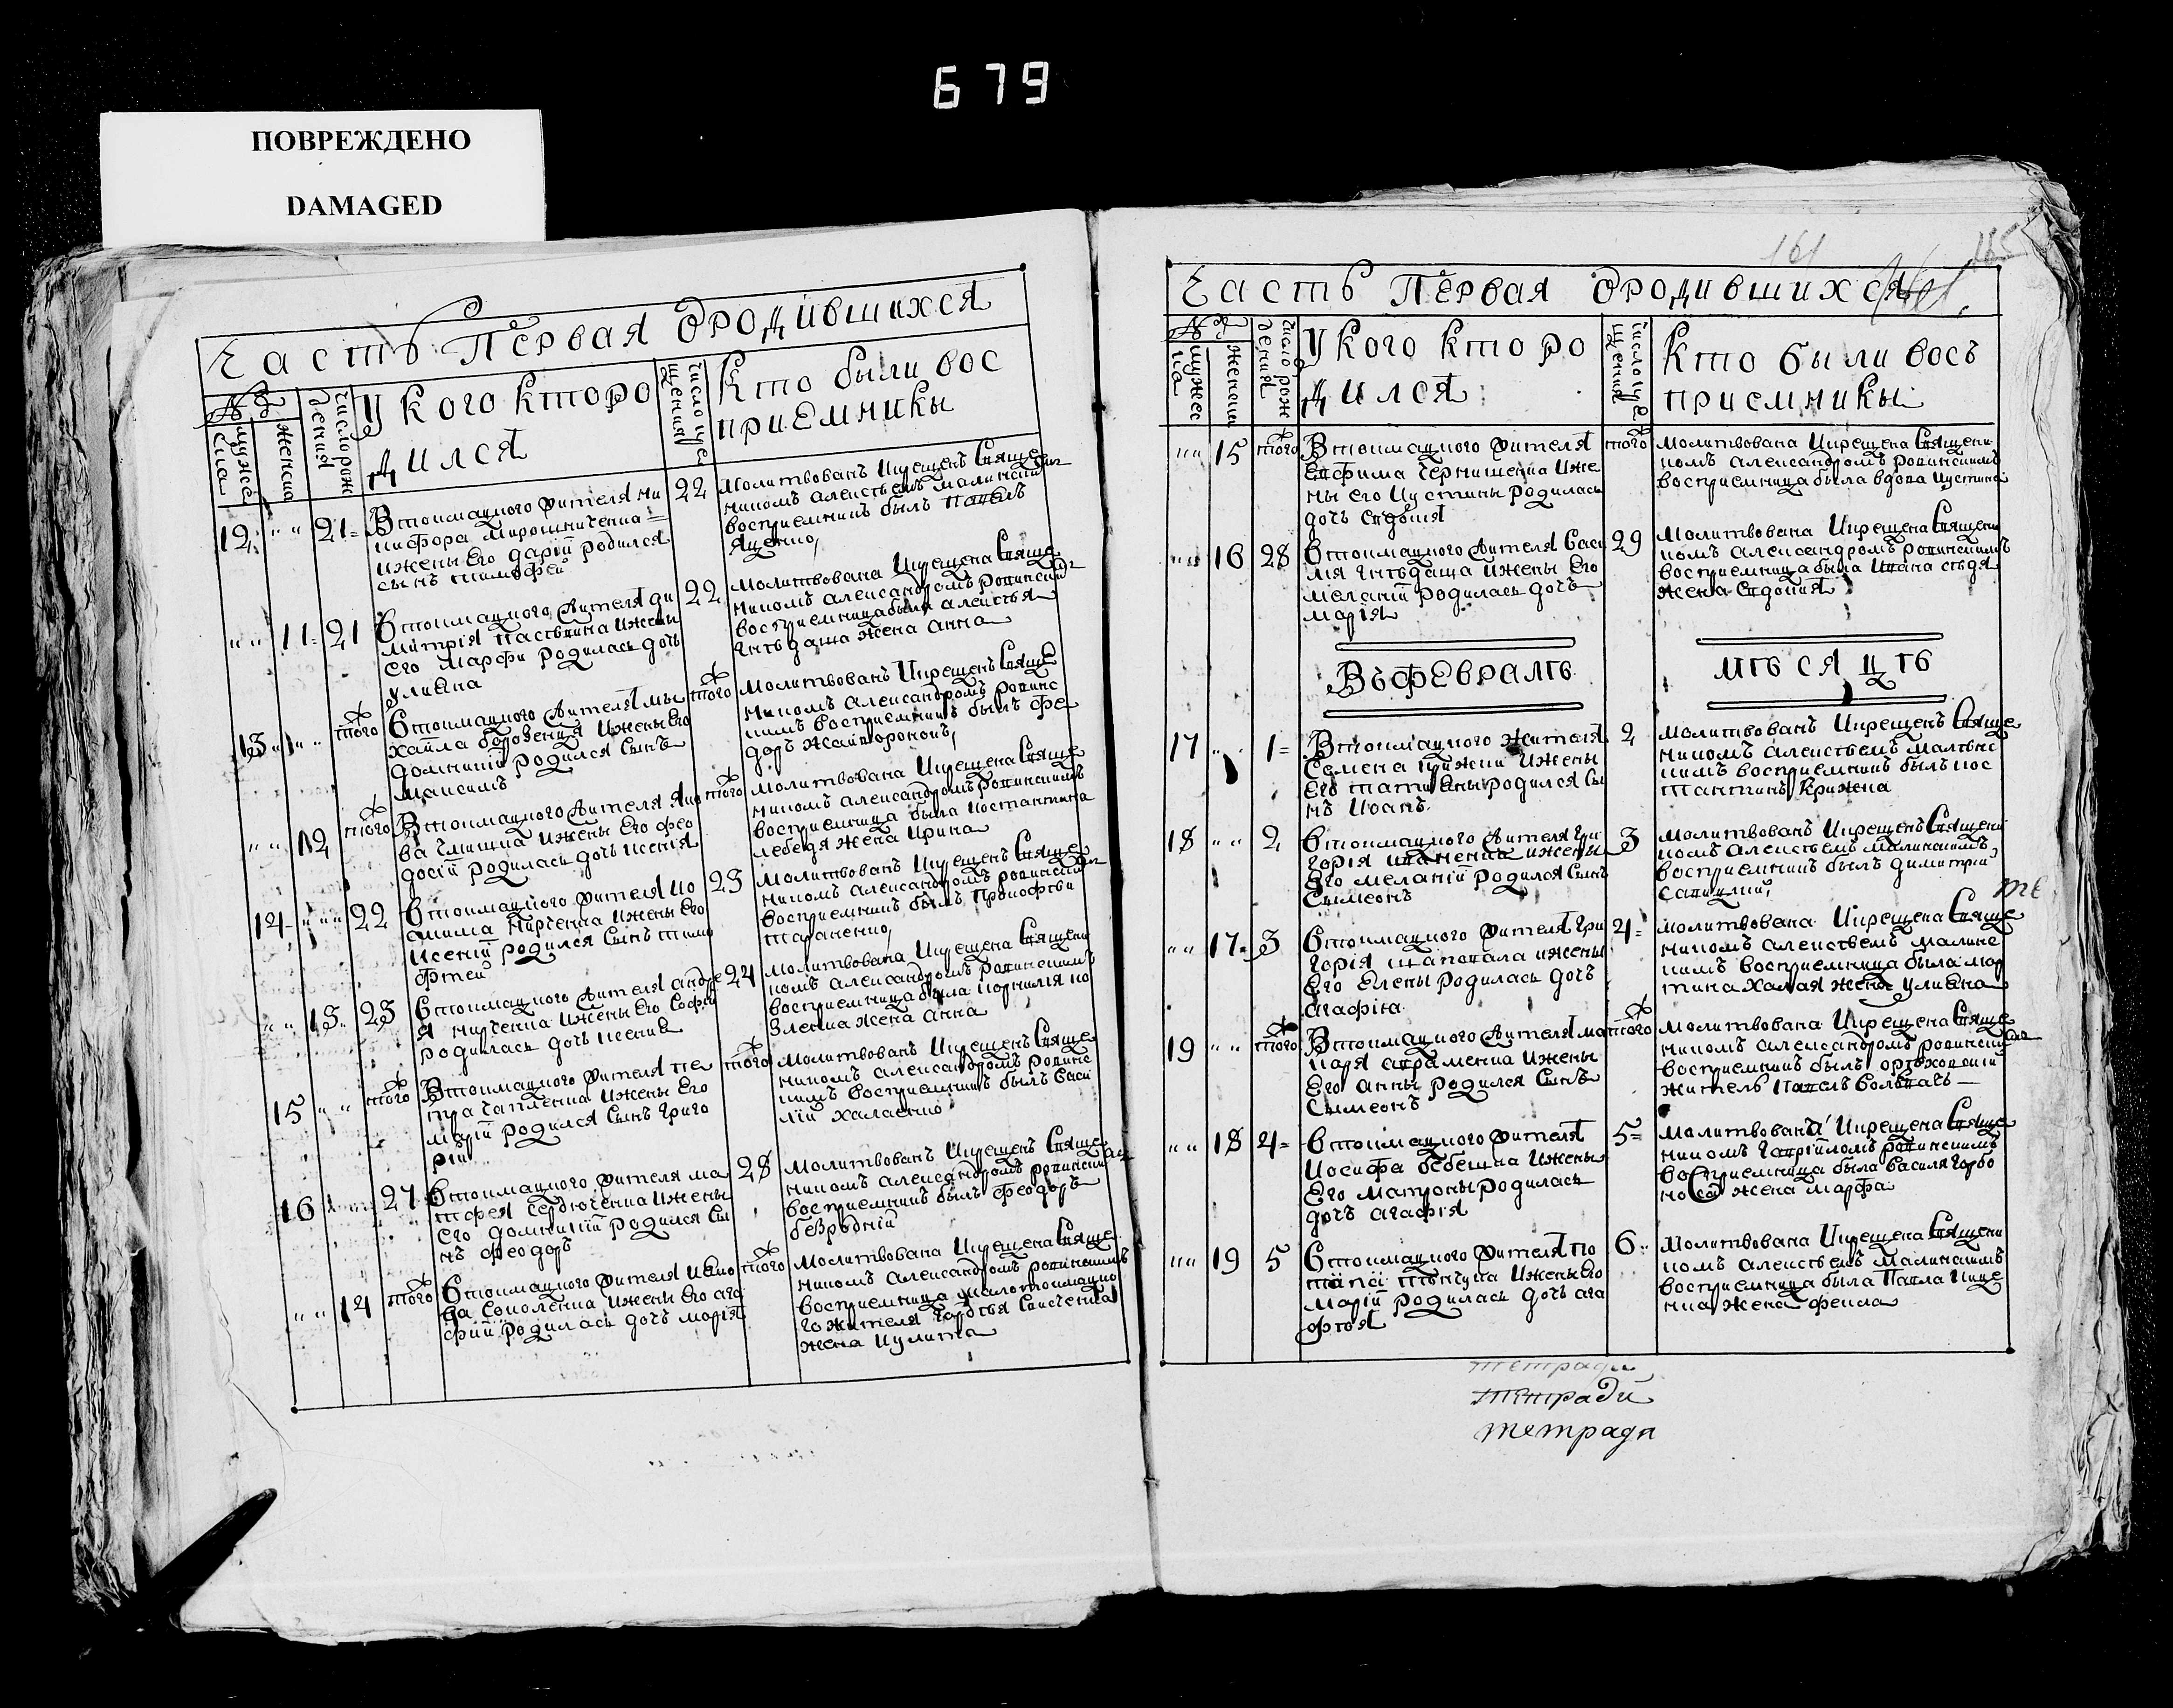 679
ПОВРЕЖДЕНО
DAMAGED
Часть Первая Ородившихся
№
мужеска
женска
число рождения
У кого кторо
дился
число крещения
Кто были вос
приемники
12 21
Втоимацкого жителя ни
кифора Мирошниченка
ижены Его дарїи родился
сынъ тимофей
22
молитвованъ Икрещенъ Свяще
никомъ алексѣемъ малинским
восприемникъ былъ Павелъ
Яценко
11 21
Втоимацкого жителя ди
митрія ижены
Его марфи родилась дочь
улияна
22
молитвована Икрещена Свяще
никомъ александромъ ровинским
восприемница была алексѣя
гнѣдаша жена анна
13 того
Втоимацкого жителя ми
хаила ижены Его
домникїи родился Сынъ
максимъ
того
молитвованъ Икрещенъ Свяще
никомъ александромъ ровинс
кимъ восприемникъ былъ фе
доръ
12 того
Втоимацкого жителя яко
ва ижены Его фео
досїи родилась дочь ксенія
того
молитвована Икрещена Свяще
никомъ александромъ ровинскимъ
восприемница была костантина
лебедя жена ирина
14 22
Втоимацкого жителя
ижены Его
ксенїи родился Сынъ тимо
фтей
23
молитвованъ Икрещенъ Свяще
никомъ александромъ ровинским
восприемникъ былъ Прокофѣи
тараненко
13 23
Втоимацкого жителя андре
я кирченка ижены Его Софїи
родилась дочь ксения
24
молитвована Икрещена Священи
комъ александромъ ровинскимъ
восприемница была корнилія ко
зленка жена анна
15 того
Втоимацкого жителя пе
тра чапленка ижены Его
марїи родился Сынъ григо
рїй
того
молитвованъ Икрещенъ Свяще
никомъ александромъ ровинс
кимъ восприемникъ былъ васи
лїй халаенко
16 27
Втоимацкого жителя ма
тфея Сердюченка ижены
Его домникїи родился Сы
нъ феодоръ
28
молитвованъ Икрещенъ Свяще
никомъ александромъ ровинским
восприемникъ былъ феодоръ
безроднїй
14 того
Втоимацкого жителя иако
ва Соколенка ижены Его ага
фїи родилась дочь марія
того
молитвована Икрещена Свяще
никомъ александромъ ровинскимъ
восприемница малотоимацко
го жителя
жена иулита
161
Часть Первая Ородившихся
№
мужеска
женска
число рождения
У кого кто ро
дился
число крещения
Кто были вось
приемники
15 того
Втоимацкого жителя
Евфима Чернишенка иже
ны его Иустины родилась
дочь Евдокия
того
молитвована Икрещена Священи
комъ александромъ ровинскимъ
восприемница была вдова иустина
16 28
Втоимацкого жителя Васи
лія гнѣдаша ижены Его
меланїи родилась дочь
марія
29
молитвована Икрещена Священи
комъ александромъ ровинскимъ
восприемница была Ивана
жена Евдокия
ВЪФЕВРАЛѢ
МѢСЯЦѢ
17 1
Втоимацкого жителя
Семена ижены
Его татияны родился Сы
нъ Иоанъ
2
молитвованъ Икрещенъ Свяще
никомъ алексѣемъ малинс
кимъ восприемникъ былъ кос
тантинъ крижена
18 2
Втоимацкого жителя гри
горія иваненка ижены
Его меланїи родился Сынъ
Сымеонъ
3
молитвованъ Икрещенъ Священи
комъ алексѣемъ малинскимъ
восприемникъ былъ димитрїи
17 3
Втоимацкого жителя гри
горія шаповала ижены
Его Елены родилась дочь
агафіка
4
молитвована Икрещена Свяще
никомъ алексѣемъ малинс
кимъ восприемница была мар
тина халая жена улияна
19 того
Втоимацкого жителя ма
каря авраменка ижены
Его анны родился Сынъ
Сымеонъ
того
молитвована Икрещена Свяще
никомъ александромъ ровинским
восприемникъ былъ орѣховский
житель Павелъ
18 4
Втоимацкого жителя
Иосифа бебешка ижены
Его матроны родилась
дочь агафія
5
молитвована Икрещена Свяще
никомъ гаврїиломъ ровинскимъ
восприемница была василя горбо
носа жена марфа
19 5
Втоимацкого жителя по
тапа ижены Его
марїи родилась дочь ага
фѣя
6
молитвована Икрещена Священи
комъ алексѣемъ малинскимъ
восприемница была Павла
жена фекла
тетради
тетради
тетради